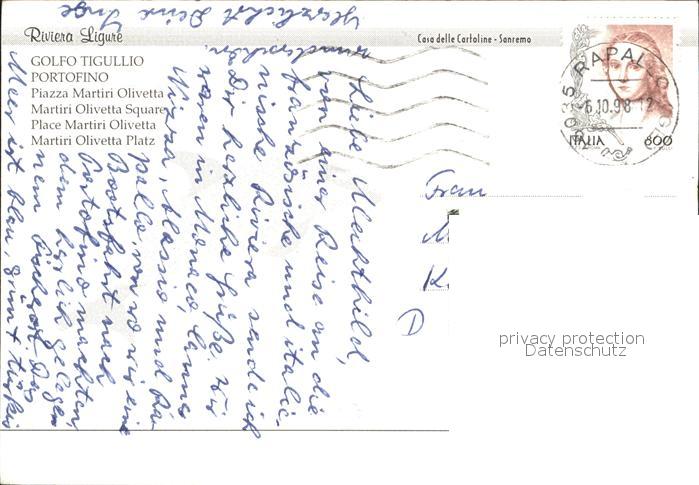 Riviera Ligure
Casa delle Cartoline - Sanremo
GOLFO TIGULLIO
PORTOFINO
Piazza Martiri Olivetta
Martiri Olivetta Square
Place Martiri Olivetta
Martiri Olivetta Platz
RAPALLO
6.10.98 12
ITALIA 800
Liebe Mechthild,
von einer Reise an die
französische und italie-
nische Riviera sende ich
Dir herzliche Grüße. Wir
waren in Monaco, Cannes
Nizza, Alassio und Ra-
pallo, von wo wir eine
Bootsfahrt nach
Portofino machten,
dem herrlich gelege-
nem Fischerort. Das
Meer ist blau, grün + türkis
wunderschön.
Herzlichst Deine Inge
Frau
D
privacy protection
Datenschutz